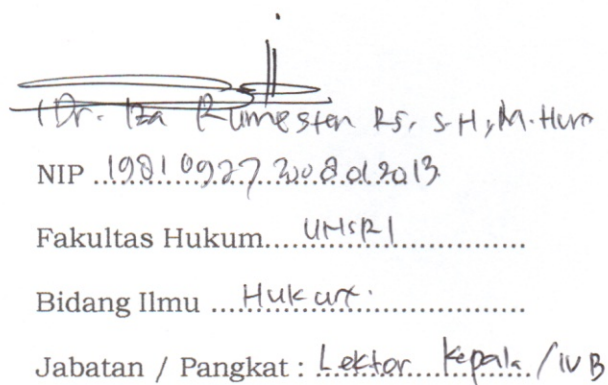 (Dr. Iza Rumesten RS, S.H, M.Hum
NIP 19810927 2008012013
Fakultas Hukum UNSRI
Bidang Ilmu Hukum
Jabatan / Pangkat : Lektor Kepala / IV B